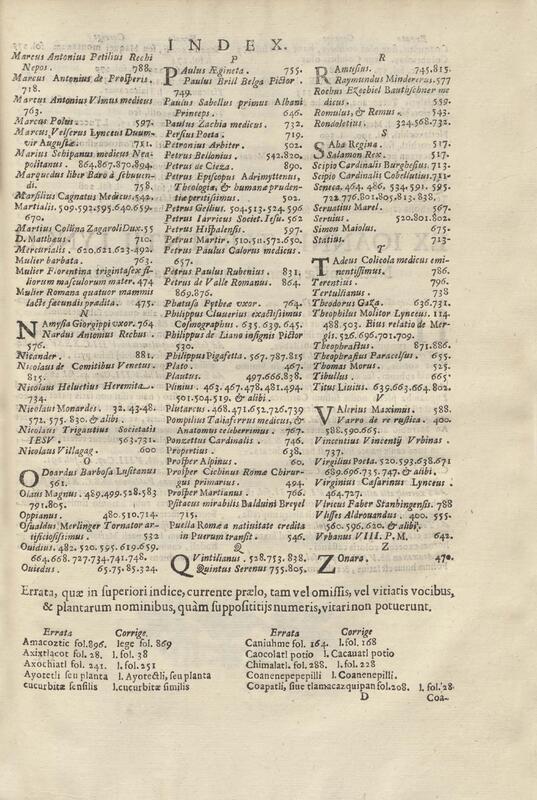 INDEX.
Marcus Antonius Petilius Rechi
Nepos. 788.
Marcus Antonius de Prosperis.
718.
Marcus Antonius Vlmus medicus
763.
Marcus Polus. 597.
Marcus Velserus Lynceus Duum-
vir Augustæ. 711.
Marius Schipanus medicus Nea-
politanus. 864.867.870.894.
Marquedus liber Baro à
d. 758.
Marsilius Cagnatus Medicus. 542.
Martialis. 509.592.595.640.659.
670.
Martius Collina Zagaroli Dux. 55
D. Matthæus. 710.
Mercurialis. 620.621.623.492.
Mulier barbata. 763.
Mulier Florentina trigintasex fi-
liorum masculorum mater. 474
Mulier Romana quatuor mammis
lacte fæcundis prædita. 475.
N
NAmysia Giorgippi vxor. 764
Nardus Antonius Rechus.
576.
Nicander. 881.
Nicolaus de Comitibus Venetus.
815.
Nicolaus Heluetius Heremita.
734.
Nicolaus Monardes. 32.43.48.
572.575.830. & alibi.
Nicolaus Trigautius Societatis
IESV. 563.731.
Nicolaus Villagag. 600
O
ODoardus Barbosa Lusitanus
561.
Olaus Magnus. 489.499.528.583
791.805.
Oppianus. 480.510.714.
Osualdus Merlinger Tornator ar-
tificiosissimus. 532
Ouidius. 482.520.595.619.659.
664.668.727.734.741.748.
Ouiedus. 65.75.85.324.
P
PAulus Ægineta. 755.
Paulus Brill Belga Pictor
749.
Paulus Sabellus primus Albani
Princeps. 646.
Paulus Zachia medicus. 732.
Persius Poeta. 719.
Petronius Arbiter. 502.
Petrus Belonius. 542.820.
Petrus de Cieza. 890.
Petrus Episcopus Adrimyttenus,
Theologiæ, & humanæ pruden-
tiæ peritissimus. 502.
Petrus Gellius. 504.513.524.596
Petrus Iarricus Societ. Iesu. 562
Petrus Hispalensis. 597.
Petrus Martir. 510.511.572.650.
Petrus Paulus Calorus medicus.
657.
Petrus Paulus Rubenius. 831.
Petrus de Valle Romanus. 864.
869.876.
Phatusa Pytheæ vxor. 764.
Philippus Cluuerius exactissimus
Cosmographus. 635.639.645.
Philippus de Liano insignis Pictor
530.
Philippus Pigafetta. 567.787.815
Plato. 467.
Plautus. 497.666.838.
Plinius. 463.467.478.481.494.
501.504.519. & alibi.
Plutarcus. 468.471.652.726.739
Pompilius Taliaferreus medicus, &
Anatomus celeberrimus. 767.
Ponzettus Cardinalis. 746.
Propertius. 638.
Prosper Alpinus. 60.
Prosper Cichinus Romæ Chirur-
gus primarius. 494.
Prosper Martianus. 766.
Psitacus mirabilis Balduini Breyel
715.
Puella Romæ a natinitate credita
in Puerum transit. 546.
Q
QVintilianus. 528.753.838.
Quintus Serenus 755.805.
R
RAmusius. 745.815.
Raymundus Mindererus. 577
Rochus Ezechiel Bauthschner me
dicus. 559.
Romulus, & Remus. 543.
Rondoletius. 324.568.732.
S
SAba Regina. 517.
Salamon Rex. 517.
Scipio Cardinalis Burghesius. 713.
Scipio Cardinalis Cobellutius. 711.
Seneca. 464.486.534.591.595.
722.776.801.805.813.838.
Seruatius Marel. 567.
Seruius. 520.801.802.
Simon Maiolus. 675.
Statius. 713.
T
TAdeus Colicola medicus emi-
nentissimus. 786.
Terentius. 796.
Tertullianus. 738
Theodorus Gaza. 636.731.
Theophilus Molitor Lynceus. 114
488.503. Eius relatio de Mer-
gis. 526.696.701.709.
Theophrastus. 871.886.
Theophrastus Paracelsus. 655.
Thomas Morus. 525.
Tibullus. 665.
Titus Liuius. 639.663.664.802.
V
VAlerius Maximus. 588.
Varro de re rustica. 400.
588.590.665.
Vincentius Vincentij Vrbinas.
737.
Virgilius Poeta. 520.593.638.671
689.696.735.747. & alibi.
Virginius Cæsarinus Lynceus.
464.727.
Vlricus Faber Stanbingensis. 788
Vlisses Aldrouandus. 400.555.
560.596.620. & alibi.
Vrbanus VIII. P. M. 642.
Z
ZOnara. 470.
Errata, quæ in superiori indice, currente prælo, tam vel omissis, vel vitiatis vocibus,
& plantarum nominibus, quàm supposititijs numeris, vitari non potuerunt.
Errata Corrige.
Amacoztic fol. 896. lege fol. 869
Axixtlacot fol. 28. l. fol. 38
Axochiatl fol. 241. l. fol. 251
Ayotetl seu planta l. Ayotectli, seu planta
cucurbitæ sensilis l. cucurbitæ similis
Errata Corrige
Caniuhme fol. 164. l. fol. 168
Caocolatl potio l. Cacauatl potio
Chimalatl fol. 288. l. fol. 228
Coanenepepepilli l. Coanenepilli.
Coapatli, siue tlamacazquipan fol. 208. l. fol. 28
D Coa-